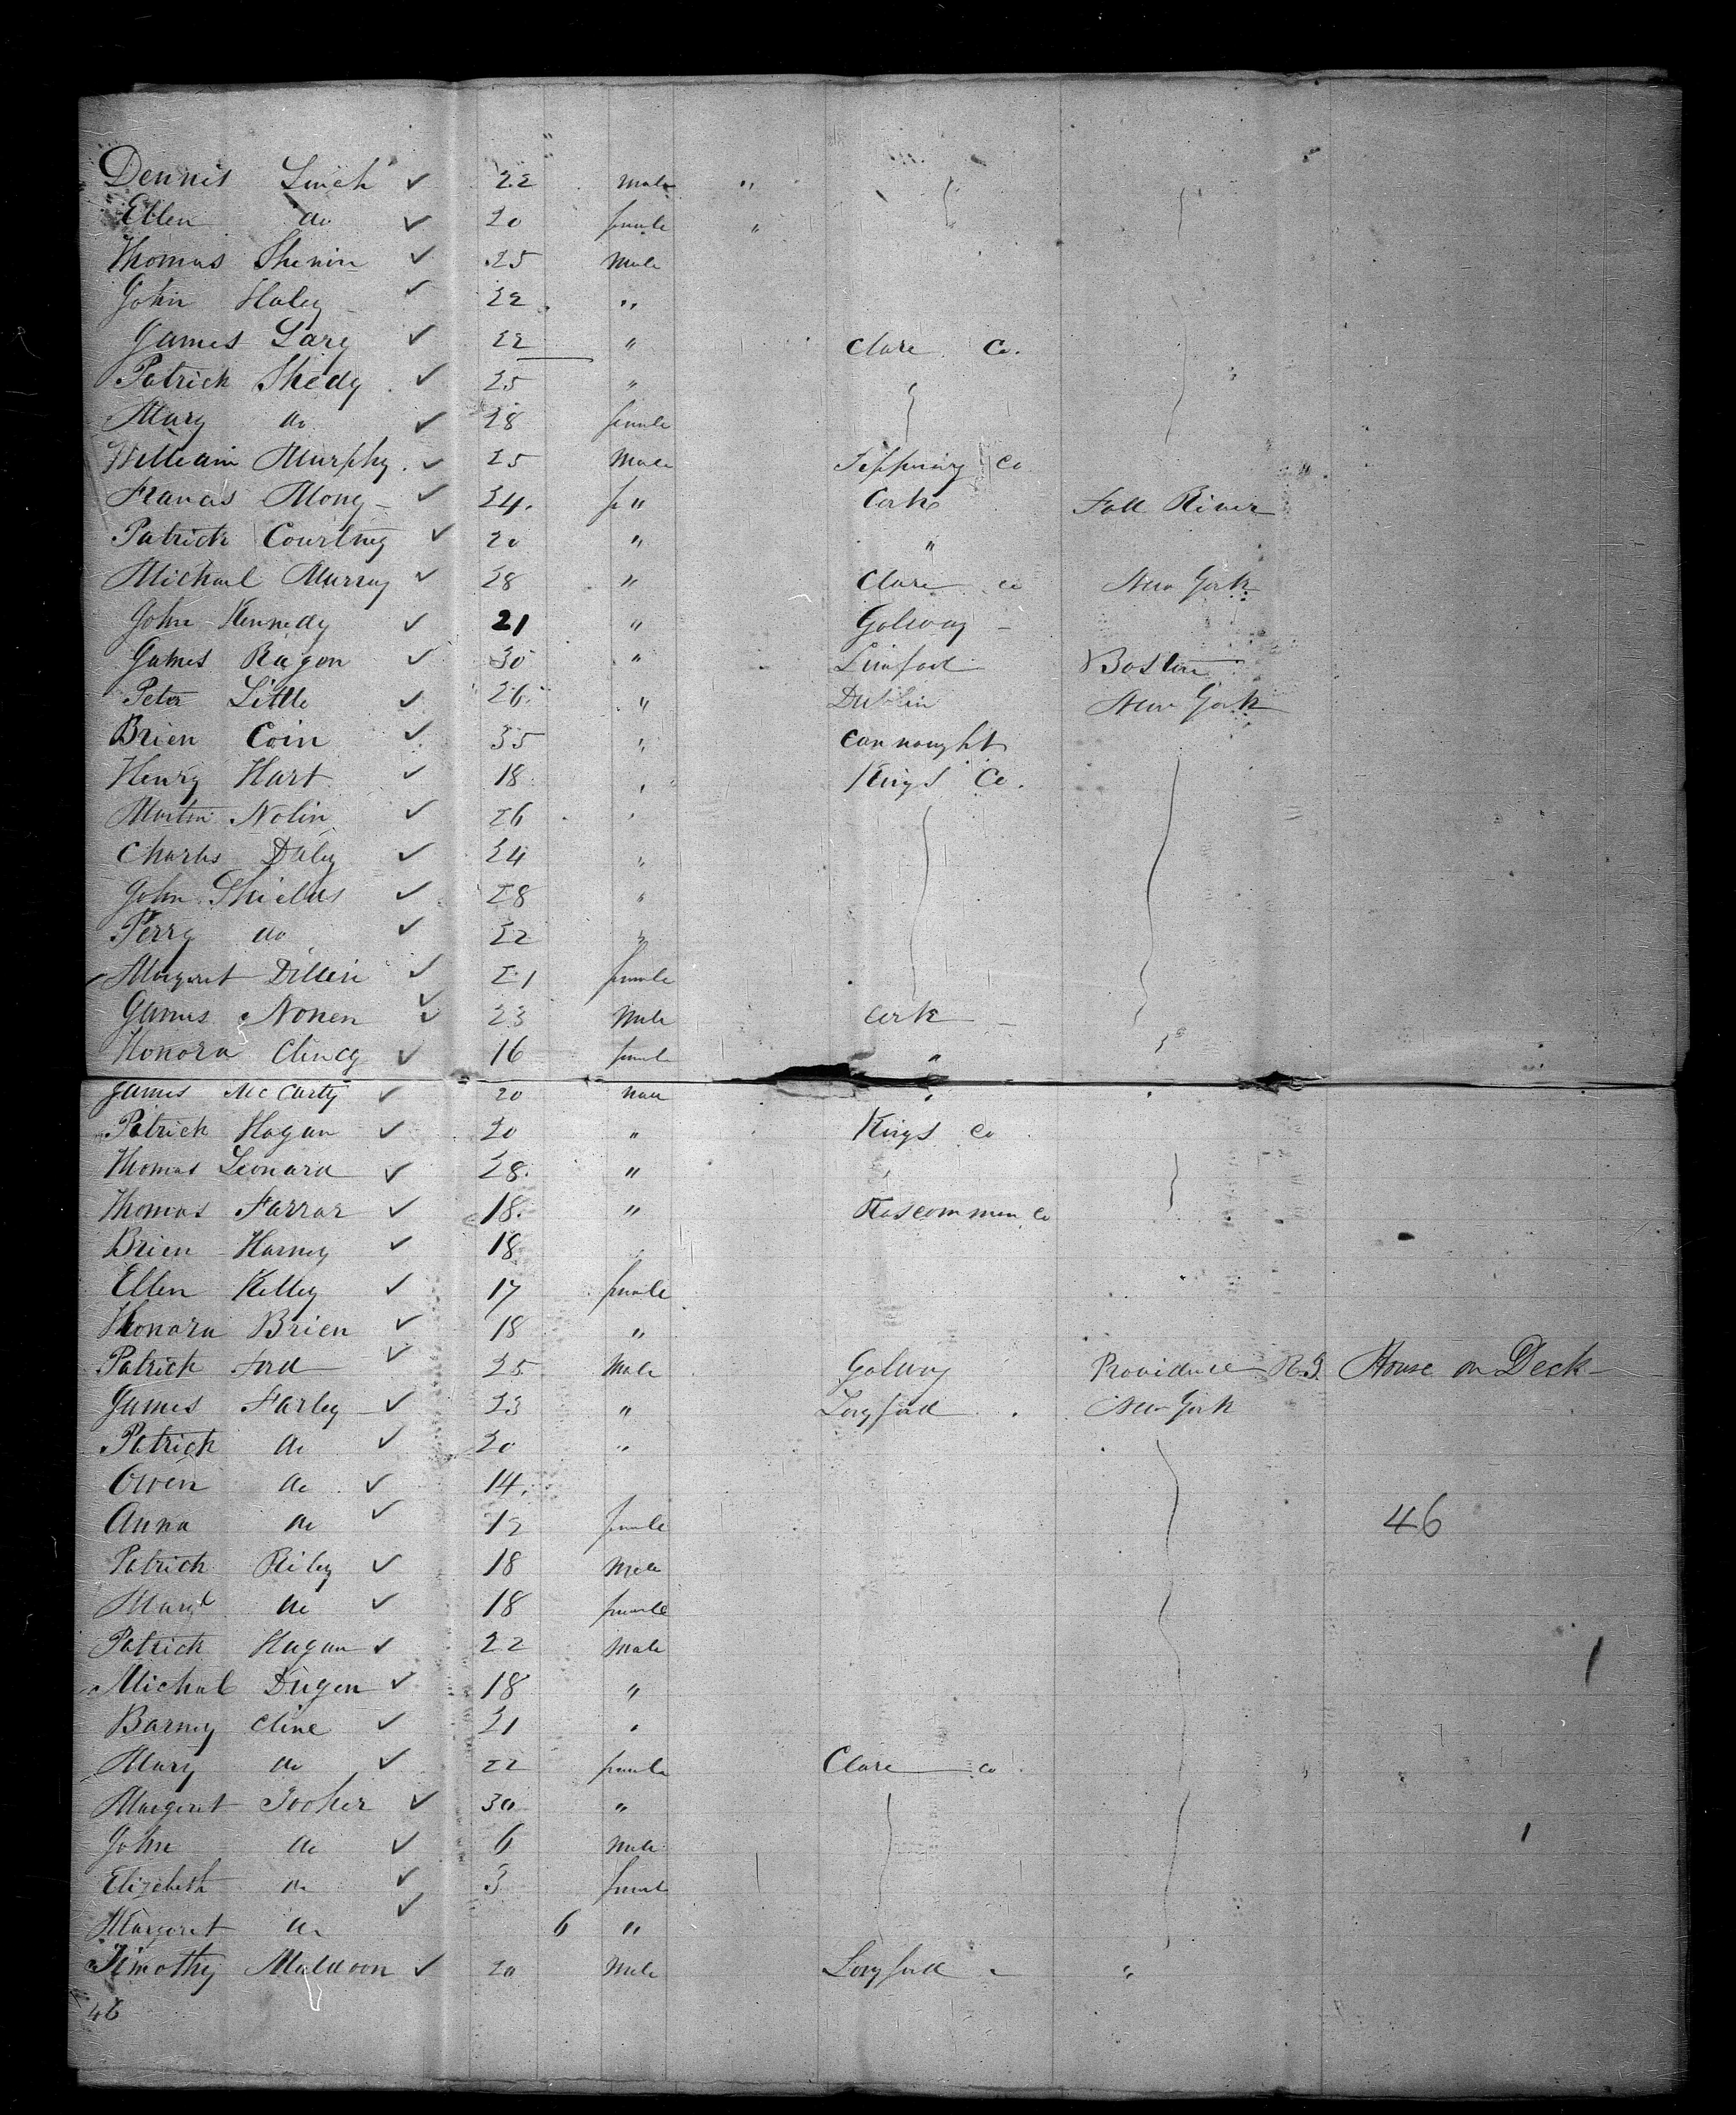 Dennis Linch ✓ 22 male "
Ellen do ✓ 20 female "
Thomas Shenin ✓ 25 Male
John Haley ✓ 22 "
James Lary ✓ 22 " Clare Co.
Patrick Shedy ✓ 25 "
Mary do ✓ 28 female
William Murphy ✓ 25 Male Tipperary Co
Francis Mony ✓ 24 " Cork Fall River
Patrick Courtney ✓ 20 " "
Michael Murray ✓ 28 " Clare co New York
John Kennedy ✓ 21 " Galway
James Ragon ✓ 30 " Boston
Peter Little ✓ 26 " Dublin New York
Brien Coin ✓ 35 " Connought
Henry Hart ✓ 18 " Kings Co.
Martin Nolin ✓ 26 "
Charles Daley ✓ 24 "
John Shields ✓ 28 "
Perry do ✓ 22 "
Margaret Dillin ✓ 21 female
James Nonen ✓ 23 Male Cork
Honora Clincy ✓ 16 female "
James McCarty ✓ 20 male "
Patrick Hagan ✓ 20 " Kings Co
Thomas Leonard ✓ 28 " "
Thomas Farrar ✓ 18 " Roscommon Co
Brien Harney ✓ 18 "
Ellen Kelley ✓ 17 female
Honora Brien ✓ 18 "
Patrick Ford ✓ 25 Male Galway Providence R.I. House on Deck
James Farley ✓ 23 " Longford New York
Patrick do ✓ 20 "
Owen do ✓ 14
Anna do ✓ 12 female 46
Patrick Riley ✓ 18 Male
Mary do ✓ 18 female
Patrick Hagan ✓ 22 Male
Michal Dugen ✓ 18 "
Barney Cline ✓ 21 "
Mary do ✓ 22 female Clare co
Margaret Tooher ✓ 30 "
John do ✓ 6 Male
Elizabeth do ✓ 3 female
Margaret do ✓ 6 "
Timothy Muldoon ✓ 20 Male Longford "
46